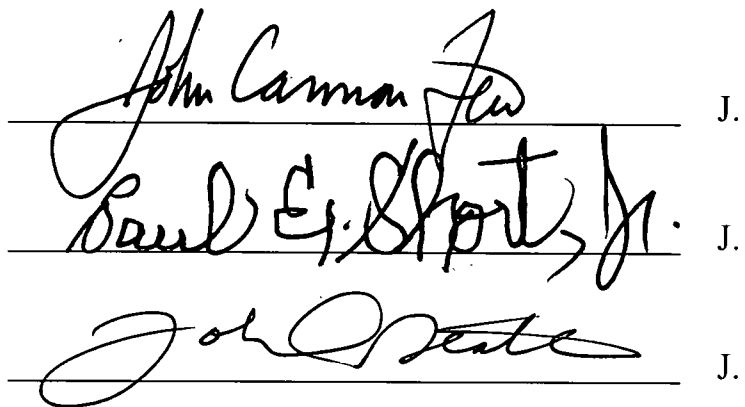 John Cannon Few J.
Paul E. Short, Jr. J.
John J.